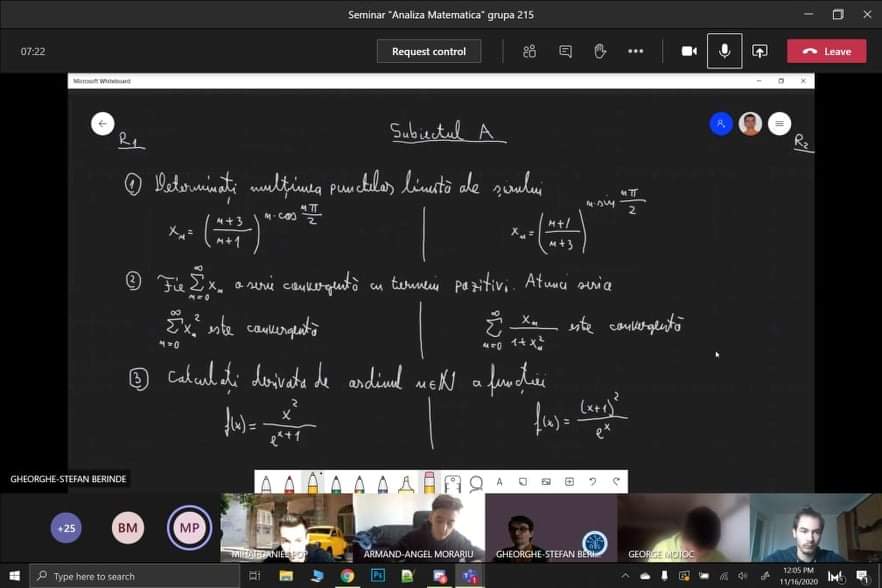 Seminar "Analiza Matematica" grupa 215
07:22
Request control
Leave
Microsoft Whiteboard
R1
Subiectul A
R2
① Determinați mulțimea punctelor limită ale șirului
xₙ = ((n+3)/(n+1))^(n·cos nπ/2)
xₙ = ((n+1)/(n+3))^(n·sin nπ/2)
② Fie ∑_{n=0}^{∞} xₙ o serie convergentă cu termeni pozitivi. Atunci seria
∑_{n=0}^{∞} xₙ² este convergentă
∑_{n=0}^{∞} xₙ/(1+xₙ²) este convergentă
③ Calculați derivata de ordinul n∈ℕ a funcției
f(x) = x²/e^(x+1)
f(x) = (x+1)²/e^x
GHEORGHE-STEFAN BERINDE
+25
BM
MP
MIHAI-DANIEL POP
ARMAND-ANGEL MORARIU
GHEORGHE-STEFAN BERI...
GEORGE MOTOC
Type here to search
12:05 PM
11/16/2020